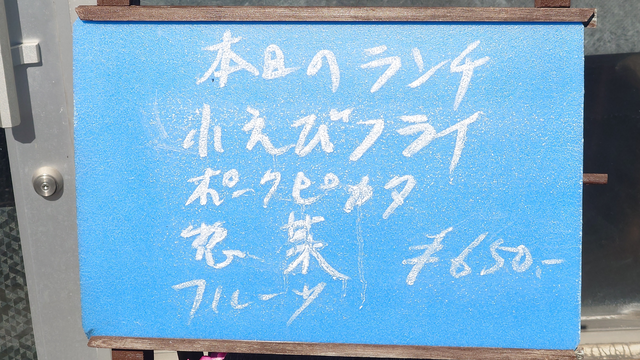 本日のランチ
小えびフライ
ポークピカタ
惣菜 ¥650.-
フルーツ